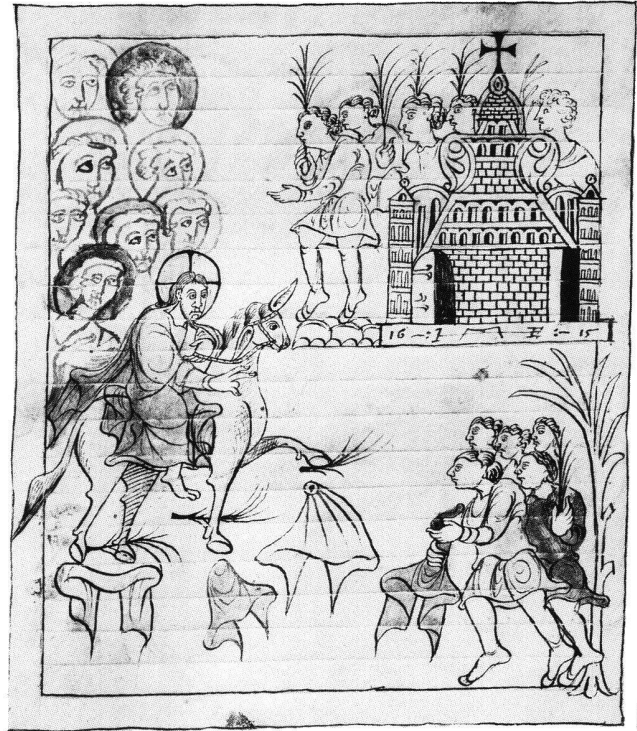 16 -:I M E :- 15